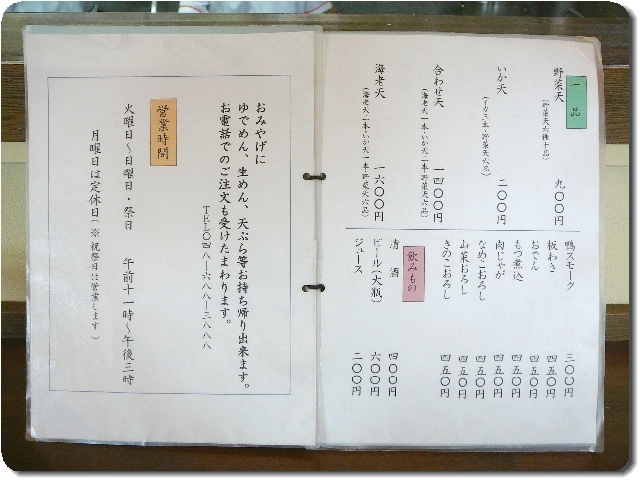 一品
野菜天 九〇〇円
いか天 一一〇〇円
合わせ天 一四〇〇円
海老天 一六〇〇円
鴨スモーク 三〇〇円
板わさ 四五〇円
おでん 四五〇円
もつ煮込 四五〇円
肉じゃが 四五〇円
なめこおろし 四五〇円
山菜おろし 四五〇円
きのこおろし 四五〇円
飲みもの
清酒 四〇〇円
ビール(大瓶) 六〇〇円
ジュース 二〇〇円
おみやげに
ゆでめん、生めん、天ぷら等お持ち帰り出来ます。
お電話でのご注文も受けたまわります。
TEL〇四八ー六八八ー三八八八
営業時間
火曜日〜日曜日・祭日 午前十一時〜午後三時
月曜日は定休日(※祝祭日は営業します)